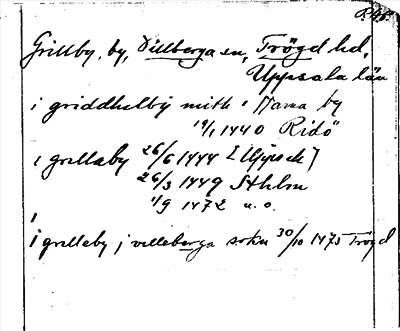 Grillby, by, Villberga sn, Trögd hd,
Uppsala län
i griddhelby mith i Harna by
19/1 1440 Ridö
i grellaby 26/6 1444 [Uppsala]
26/3 1449 Sthlm
1/9 1472 u. o.
i grelleby j velleberga sokn 30/10 1475 Trögd